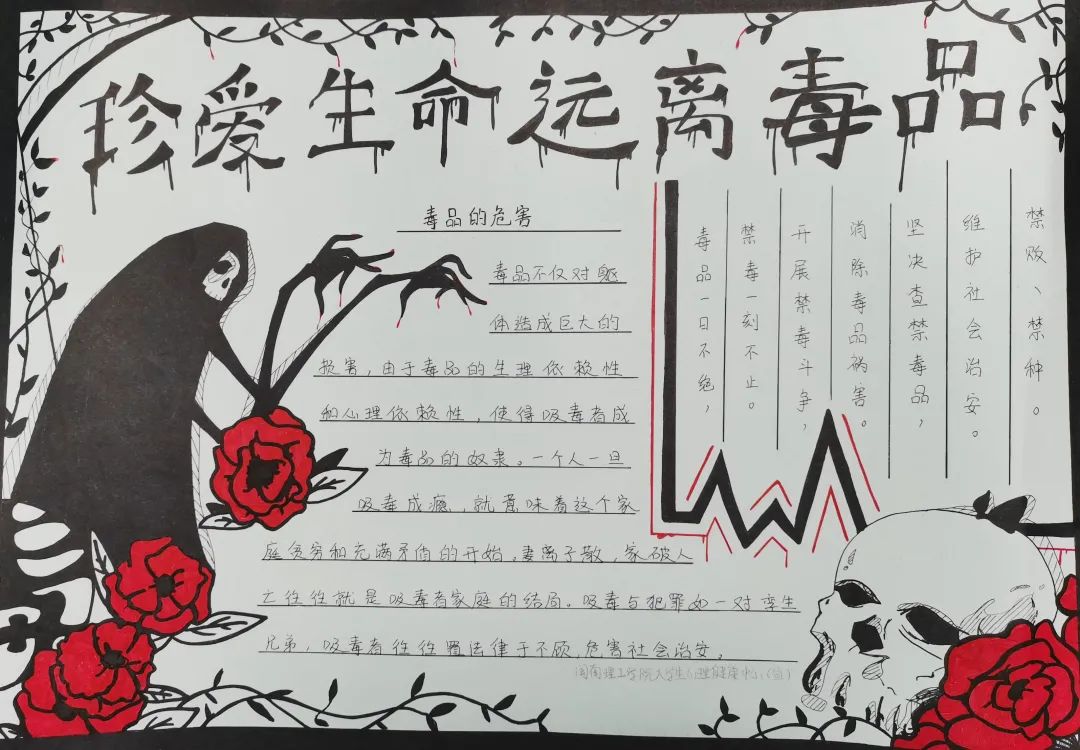 珍爱生命远离毒品
毒品的危害
毒品不仅对躯
体造成巨大的
损害，由于毒品的生理依赖性
和心理依赖性，使得吸毒者成
为毒品的奴隶。一个人一旦
吸毒成瘾，就意味着这个家
庭贫穷和充满矛盾的开始，妻离子散，家破人
亡往往就是吸毒者家庭的结局。吸毒与犯罪如一对孪生
兄弟，吸毒者往往置法律于不顾，危害社会治安。
闽南理工学院大学生心理健康中心（宣）
毒品一日不绝，
禁毒一刻不止。
开展禁毒斗争，
消除毒品祸害。
坚决查禁毒品，
维护社会治安。
禁贩、禁种。